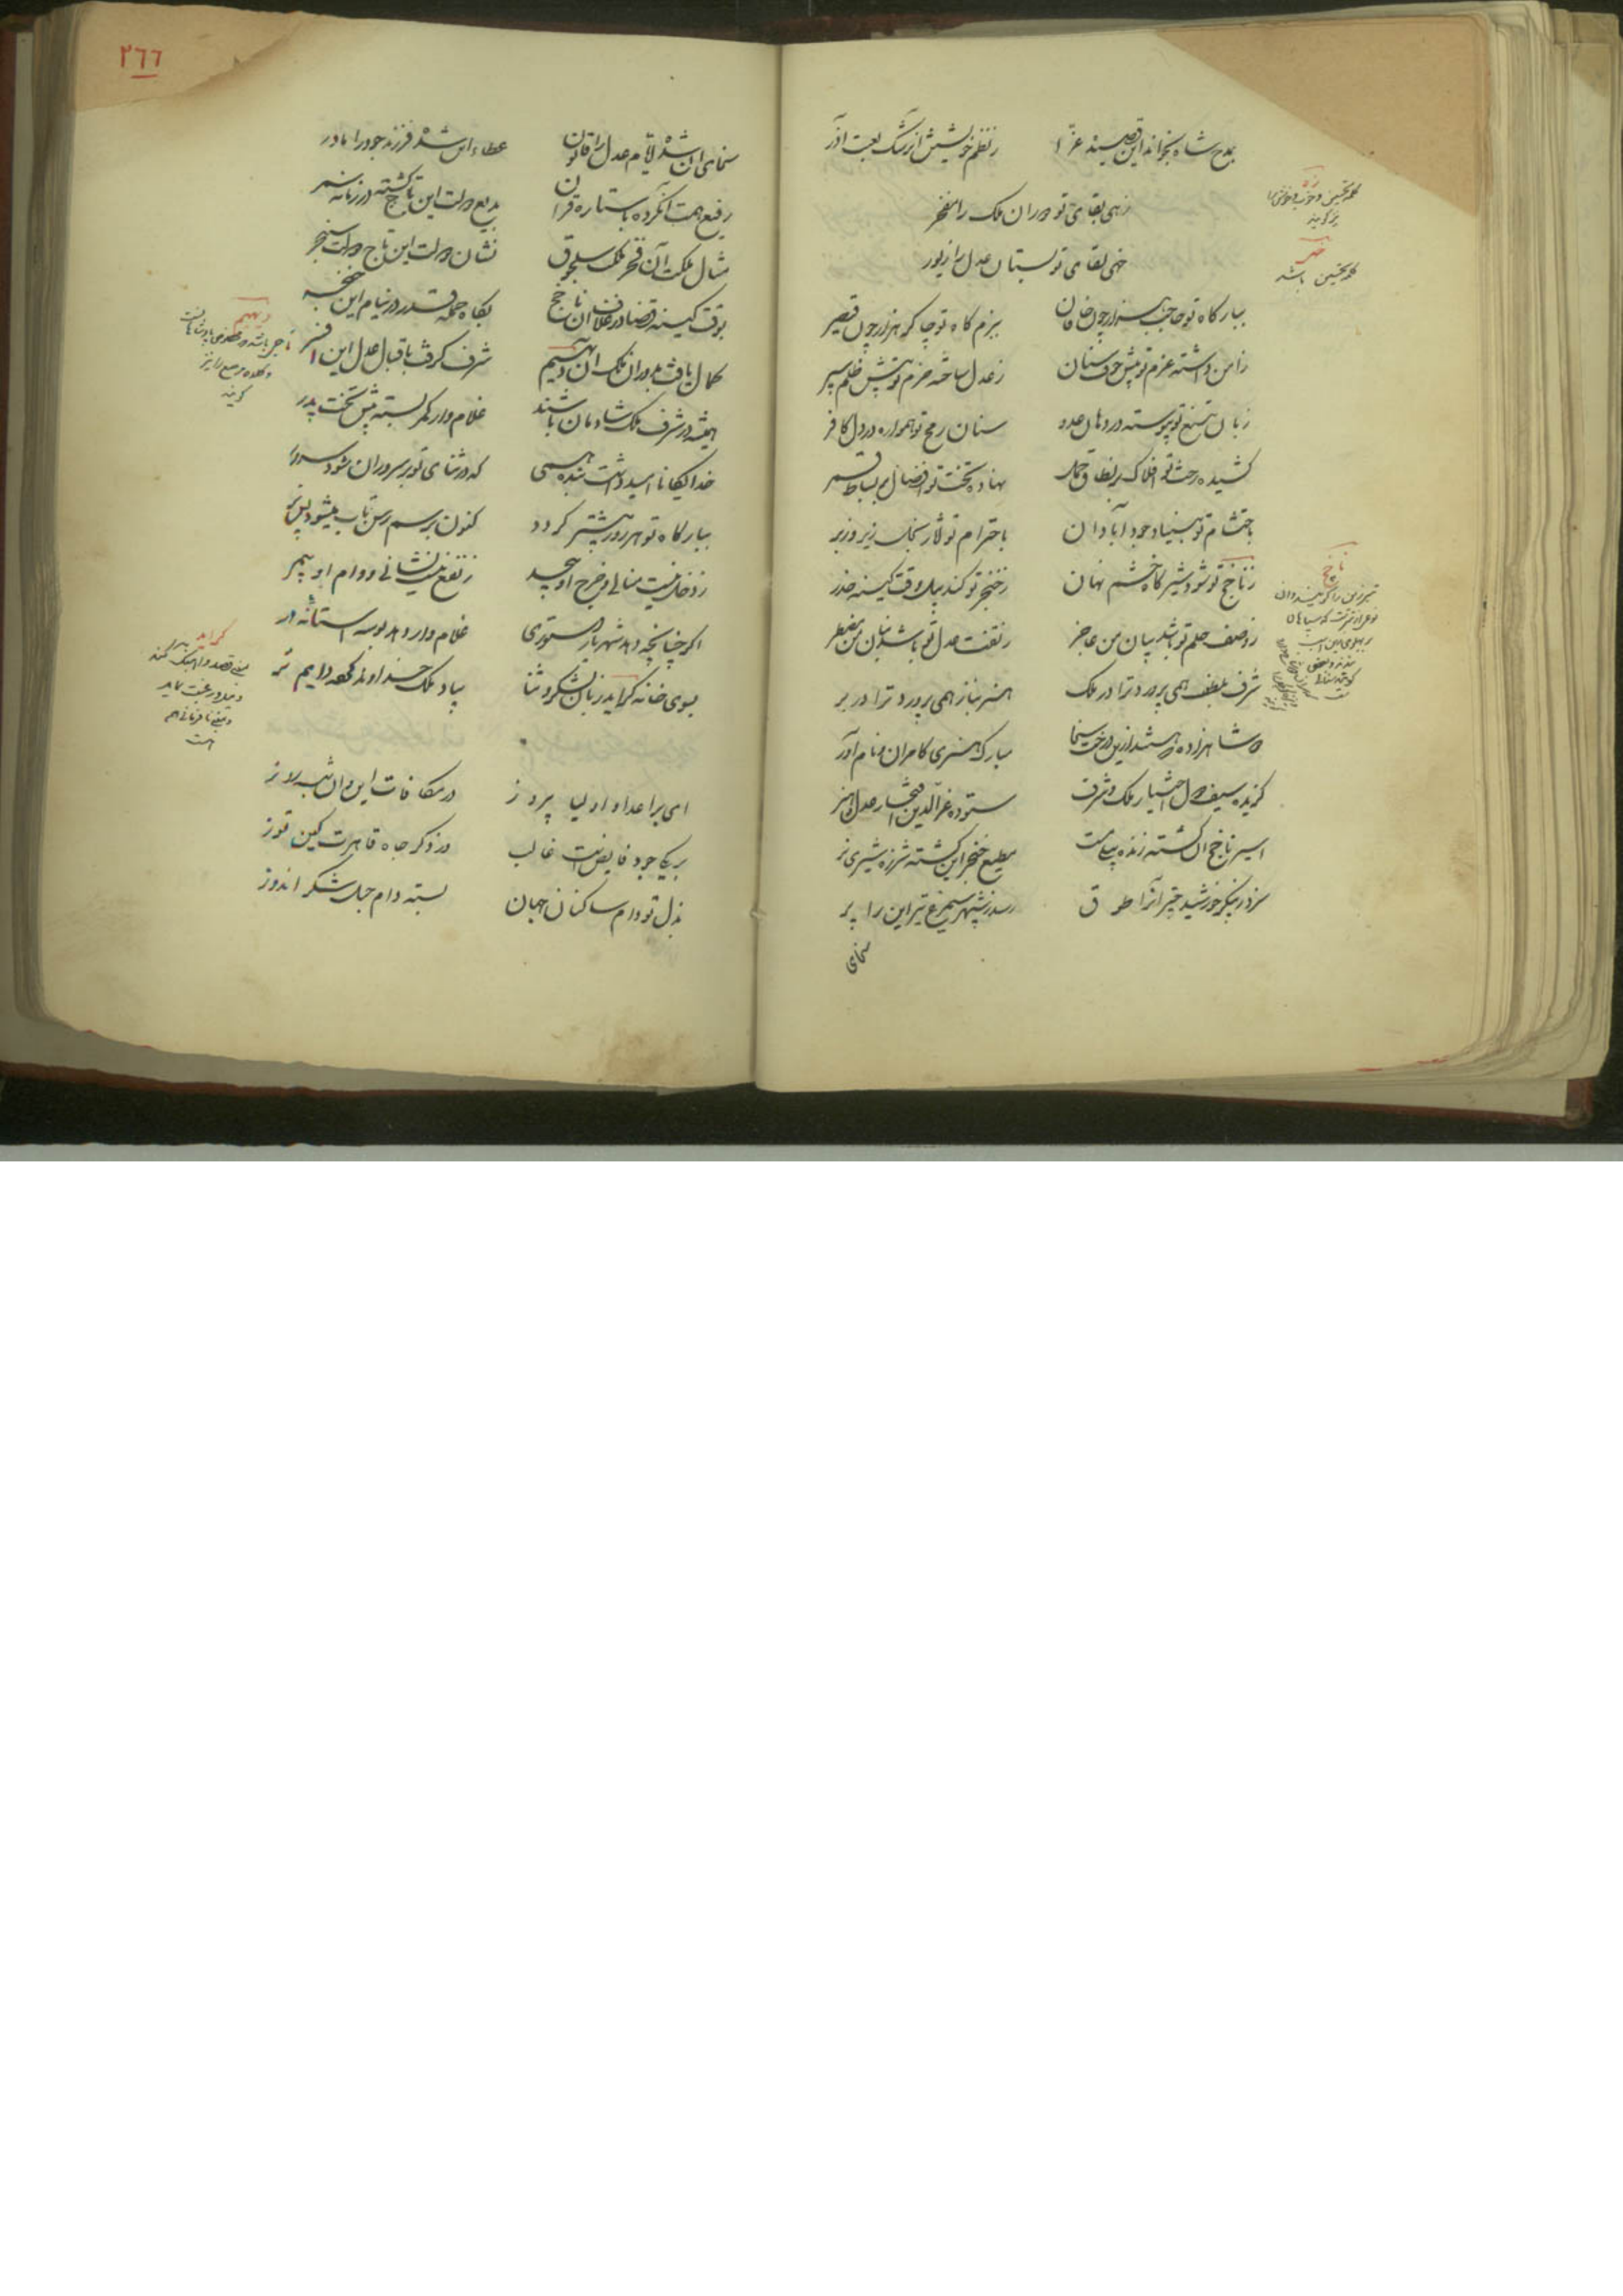 بمدح شاه بخواند این قصیده غرا
ز نظم خویش از رشک لعبت آذر
زهی بقای تو دوران ملک را مفخر
خهی لقای تو بستان عدل را زیور
ببارگاه تو حاجب هزار چون خاقان
ببزم گاه تو چاکر هزار چون قیصر
ز امن داشته عزم تو پیش خوف سنان
ز عدل ساخته حزم تو پیش ظلم سپر
زبان تیغ تو پیوسته در دهان عدو
سنان رمح تو همواره در دل کافر
کشیده رخت تو افلاک بر نطاق
نهاده تخت تو افضال بر بساط
باحتشام تو بنیاد جود آبادان
باحترام تو بخل زیر و زبر
ز ناخج تو شود شیر گاه خشم نهان
ز خنجر تو کند پیل وقت کینه حذر
ز وصف حلم تو باشد بیان من عاجز
ز نعت عدل تو باشد بنان من مضطر
شرف بلطف همی پرورد ترا در ملک
هنر بناز همی پرورد ترا در بر
دو شاهزاده
مبارک هنری کامران و نام آور
گزیده سیف دول اختیار ملک و شرف
ستوده عز الدین افتخار عدل و هنر
اسیر ناخج آن گشته زنده پیل مست
مطیع خنجر این گشته شرزه شیر نر
سزد ز پیکر خورشید چتر آنرا طوق
رسد ز شهپر سیمرغ تیر این را پر
سخای
کلمه تحسین
کلمه تحسین باشد
ناخج
٢٦٦
سخای آن شده ایام عدل را قانون
عطاء این شده فرزند جود را مادر
رفیع همت آن کرده با ستاره قران
بدیع دولت این گشته در زمانه سمر
مثال ملکت آن فخر ملکت سلجوق
نشان دولت این تاج دولت سنجر
بوقت کینه قضا در غلاف آن ناخج
بگاه حمله قدر در نیام این خنجر
کمال یافت بدوران ملک آن دیهیم
شرف گرفت باقبال عدل این افسر
همیشه در شرف ملک شادمان باشند
غلام وار کمر بسته پیش تخت پدر
خدایگانا امید داشت بنده همی
که در ثنای تو بر سروران شود سرور
ببارگاه تو هر روز پیشتر گردد
کنون برسم رسن تاب میشود پس تر
ز دخل نیست منالی و خرج او بیحد
ز نفع نیست نشانی و وام او بی مر
اگر چنانچه دهد شهریار دستوری
غلام وار دهد بوسه آستانه در
بسوی خانه گراید زبان بشکر و ثنا
بیاد ملک خداوند کرده دایم تر
ای بر اعدا و اولیا پیروز
در مکافات این و آن شب و روز
بر یکی جود فایضت غالب
در ذکر جاه قاهرت کین توز
بذل تو دام ساکنان جهان
بسته دام شکر اندوز
دیهیم
گراید